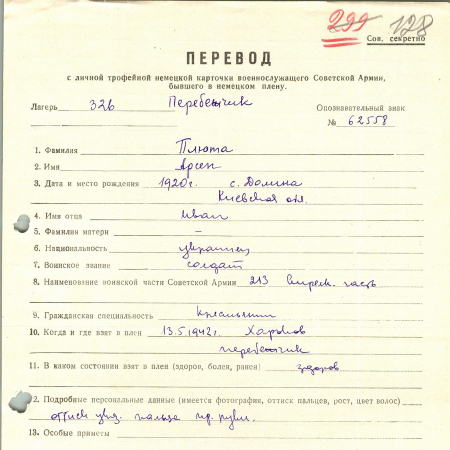 299 128
Сов. секретно
ПЕРЕВОД
с личной трофейной немецкой карточки военнослужащего Советской Армии,
бывшего в немецком плену.
Лагерь 326 Перебежчик Опознавательный знак
№ 62558
1. Фамилия Плюта
2. Имя Арсен
3. Дата и место рождения 1920г. с. Долина
Киевская обл.
4. Имя отца Иван
5. Фамилия матери –
6. Национальность украинец
7. Воинское звание солдат
8. Наименование воинской части Советской Армии 213 стрелк. часть
9. Гражданская специальность Крестьянин
10. Когда и где взят в плен 13.5.1942г. Харьков
перебежчик
11. В каком состоянии взят в плен (здоров, болен, ранен) здоров
2. Подробные персональные данные (имеется фотография, оттиск пальцев, рост, цвет волос)
оттиск указ. пальца пр. руки.
13. Особые приметы